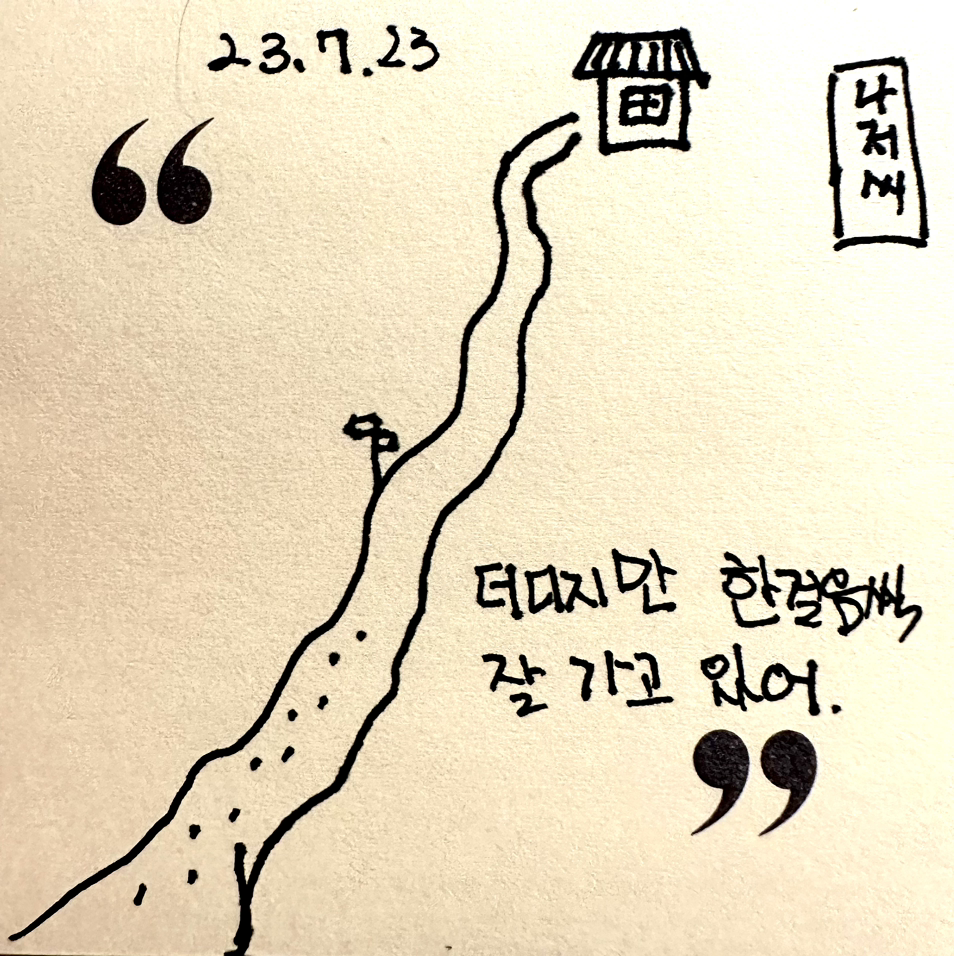 23.7.23
나
저
씨
“
더디지만 한걸음씩
잘 가고 있어.
”